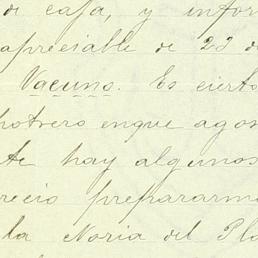 de casa, y infor
apreciable de 23 de
Vacuno. Es cierto
potrero en que agos
te hay algunos
recio prepararme
la Noria del Pla